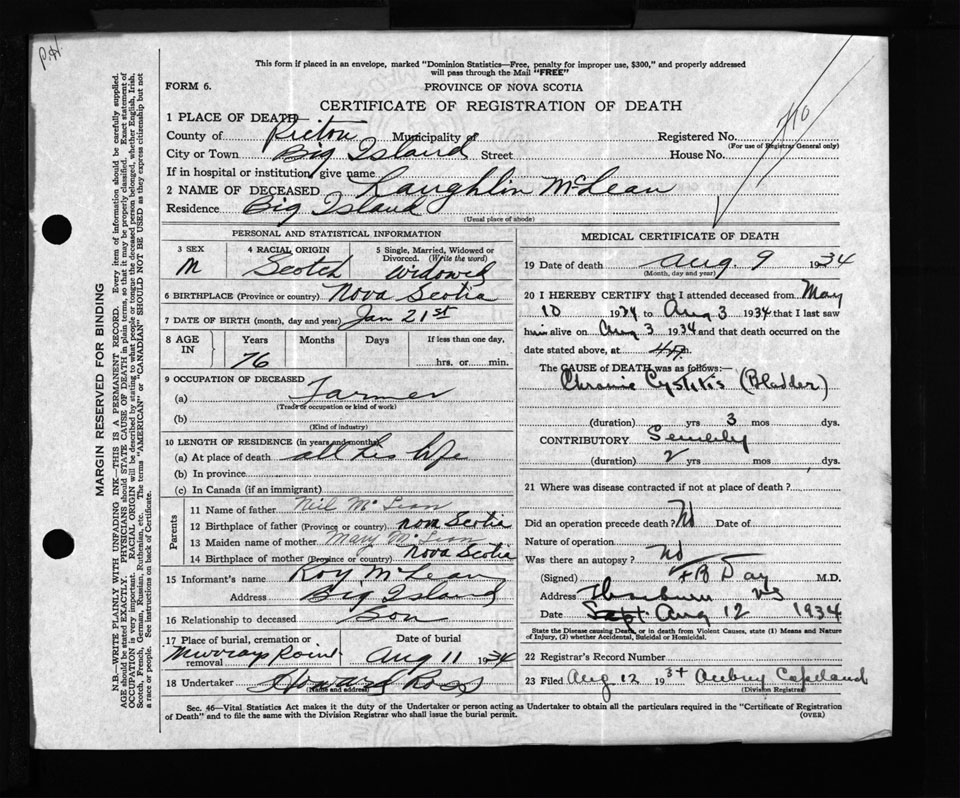 This form if placed in an envelope, marked "Dominion Statistics—Free, penalty for improper use, $300," and properly addressed
will pass through the Mail "FREE"
FORM 6.
PROVINCE OF NOVA SCOTIA
CERTIFICATE OF REGISTRATION OF DEATH
1 PLACE OF DEATH
County of Pictou Municipality of Registered No.
(For use of Registrar General only)
City or Town Big Island Street House No.
If in hospital or institution, give name
2 NAME OF DECEASED Laughlin McLean
Residence Big Island
(Usual place of abode)
PERSONAL AND STATISTICAL INFORMATION
3 SEX 4 RACIAL ORIGIN 5 Single, Married, Widowed or
Divorced. (Write the word)
M Scotch Widowed
6 BIRTHPLACE (Province or country) Nova Scotia
7 DATE OF BIRTH (month, day and year) Jan 21st
8 AGE IN Years Months Days If less than one day,
76 hrs. or min.
9 OCCUPATION OF DECEASED
(a) Farmer
(Trade or occupation or kind of work)
(b)
(Kind of industry)
10 LENGTH OF RESIDENCE (in years and months)
(a) At place of death all his life
(b) In province
(c) In Canada (if an immigrant)
Parents
11 Name of father Neil McLean
12 Birthplace of father (Province or country) Nova Scotia
13 Maiden name of mother Mary McLean
14 Birthplace of mother (Province or country) Nova Scotia
15 Informant's name Roy McLean
Address Big Island
16 Relationship to deceased Son
17 Place of burial, cremation or removal Date of burial
Murrays Point Aug 11 1934
18 Undertaker Howard Ross
(Name and address)
MEDICAL CERTIFICATE OF DEATH
19 Date of death Aug. 9 1934
(Month, day and year)
20 I HEREBY CERTIFY that I attended deceased from May
10 1934 to Aug 3 1934 that I last saw
him alive on Aug 3 1934 and that death occurred on the
date stated above, at
The CAUSE OF DEATH was as follows:—
Chronic Cystitis (Bladder)
(duration) yrs 3 mos dys.
CONTRIBUTORY Senility
(duration) 2 yrs mos dys.
21 Where was disease contracted if not at place of death?
Did an operation precede death? No Date of
Nature of operation
Was there an autopsy? No
(Signed) F B Day M.D.
Address Thorburn NS
Date Sept Aug 12 1934
State the Disease causing Death, or in death from Violent Causes, state (1) Means and Nature
of Injury, (2) whether Accidental, Suicidal or Homicidal.
22 Registrar's Record Number
23 Filed Aug 12 1934 Copeland
(Division Registrar)
Sec. 46—Vital Statistics Act makes it the duty of the Undertaker or person acting as Undertaker to obtain all the particulars required in the "Certificate of Registration
of Death" and to file the same with the Division Registrar who shall issue the burial permit.
(OVER)
MARGIN RESERVED FOR BINDING
N.B.—WRITE PLAINLY WITH UNFADING INK—THIS IS A PERMANENT RECORD. Every item of information should be carefully supplied.
AGE should be stated EXACTLY. PHYSICIANS should STATE CAUSE OF DEATH in plain terms, so that it may be properly classified. Exact statement of
OCCUPATION is very important. RACIAL ORIGIN will be described by stating to what people or tongue the deceased person belonged, whether English, Irish,
Scotch, French, German, Russian, Ruthenian, etc. The terms "AMERICAN" or "CANADIAN" SHOULD NOT BE USED as they express citizenship but not
a race or people. See instructions on back of Certificate.